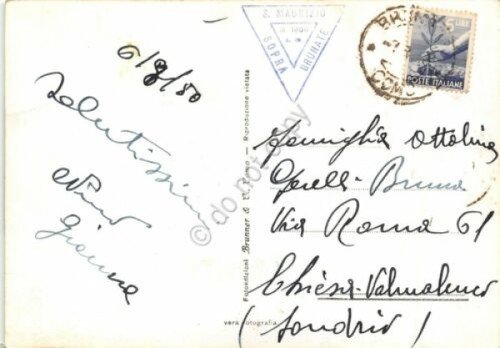 6/8/50
Salutissimi
Nino
Gianna
S. MAURIZIO
SOPRA
BRUNATE
BRUNATE
COMO
5 LIRE
POSTE ITALIANE
Famiglia Ottolina
Gorelli Bruna
Via Roma 61
Chiesa-Valmalenco
(Sondrio)
Fotoedizioni Brunner & C. Como - Riproduzione vietata
vera fotografia
do not copy